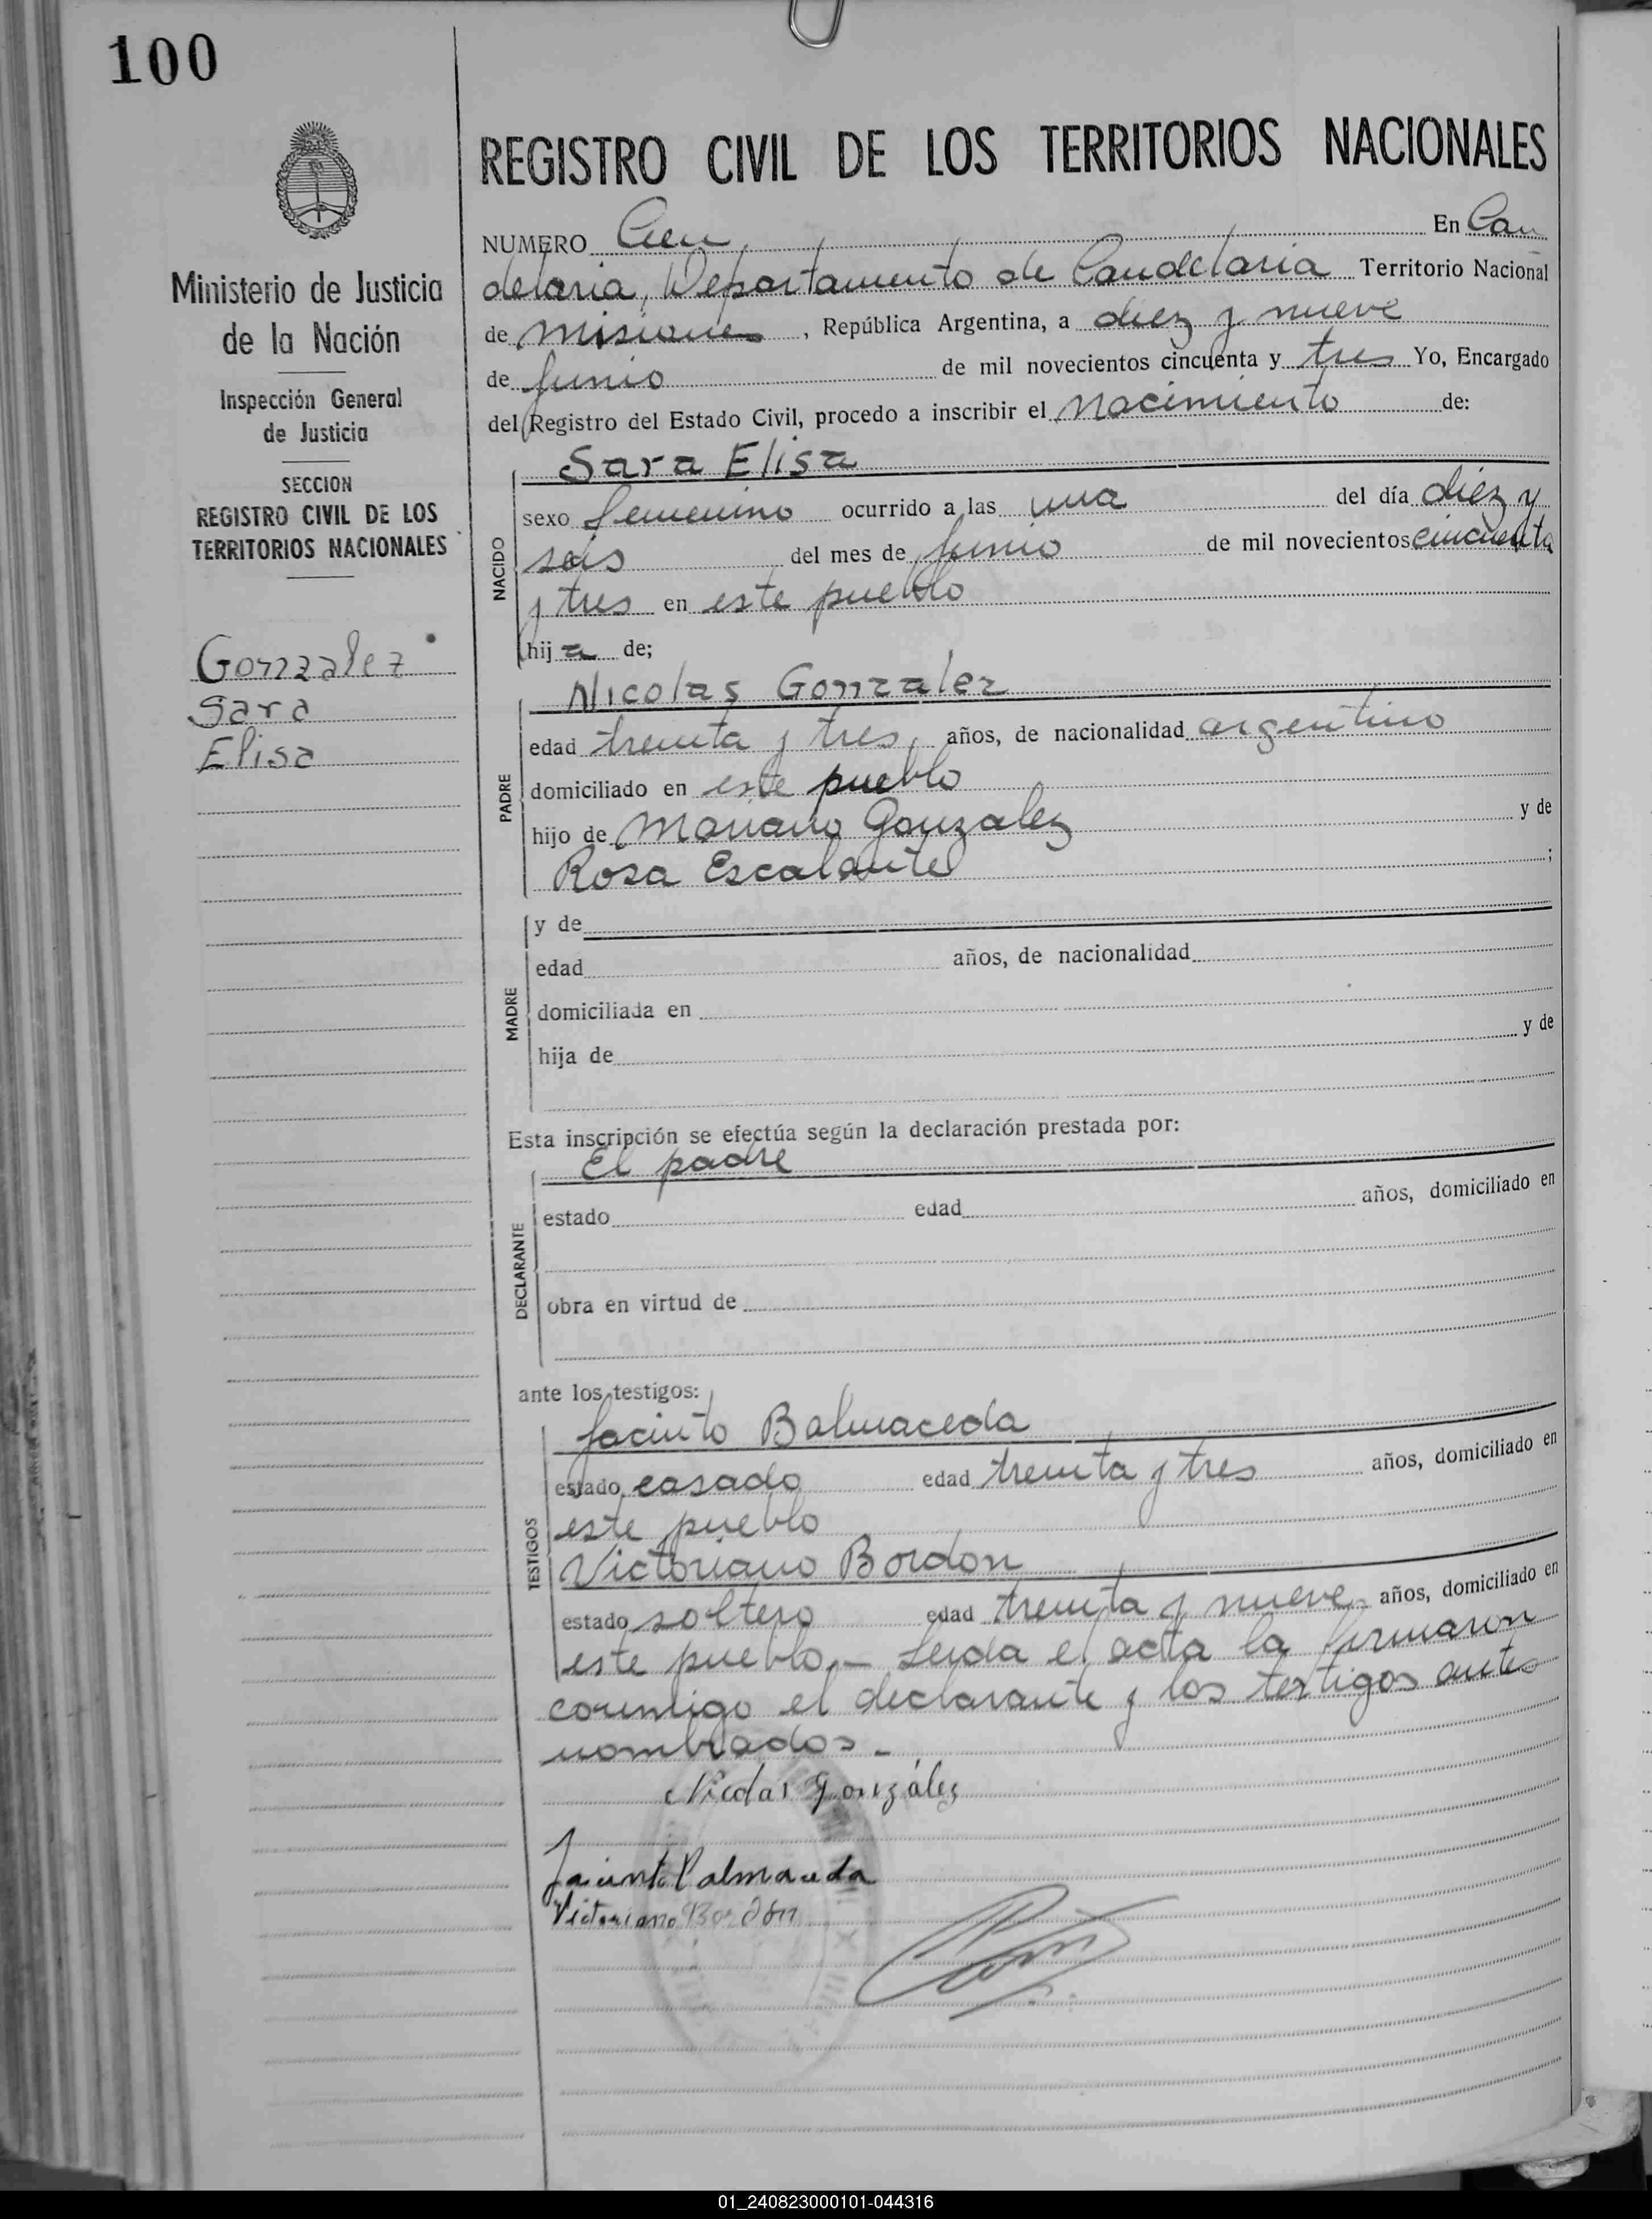 100
Ministerio de Justicia
de la Nación
Inspección General
de Justicia
SECCION
REGISTRO CIVIL DE LOS
TERRITORIOS NACIONALES
Gonzalez
Sara
Elisa
REGISTRO CIVIL DE LOS TERRITORIOS NACIONALES
NUMERO Cien, En Can
delaria, Departamento de Candelaria Territorio Nacional
de Misiones, República Argentina, a diez y nueve
de Junio de mil novecientos cincuenta y tres Yo, Encargado
del Registro del Estado Civil, procedo a inscribir el Nacimiento de:
NACIDO
Sara Elisa
sexo femenino ocurrido a las una del día diez y
seis del mes de Junio de mil novecientos cincuenta
y tres en este pueblo
hija de;
PADRE
Nicolas Gonzalez
edad treinta y tres, años, de nacionalidad argentino
domiciliado en este pueblo
hijo de Mariano Gonzalez y de
Rosa Escalante ;
MADRE
y de
edad años, de nacionalidad
domiciliada en
hija de y de
Esta inscripción se efectúa según la declaración prestada por:
DECLARANTE
El padre
estado edad años, domiciliado en
obra en virtud de
ante los testigos:
TESTIGOS
Jacinto Balmaceda
estado casado edad treinta y tres años, domiciliado en
este pueblo
Victoriano Bordon
estado soltero edad treinta y nueve años, domiciliado en
este pueblo.- Leida el acta la firmaron
conmigo el declarante y los testigos antes
nombrados.-
Nicolas González
Jacinto Balmaceda
Victoriano Bordón
01_240823000101-044316